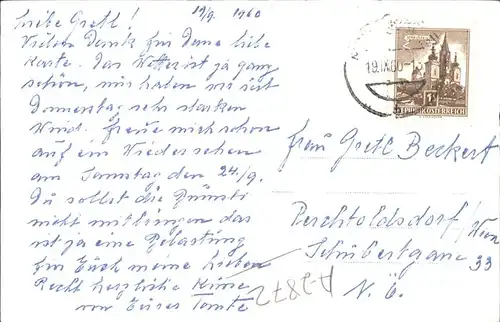 19/9. 1960
Liebe Gretl!
Vielen Dank für Deine liebe
Karte. Das Wetter ist ja ganz
schön, wir haben nur seit
Donnerstag sehr starken
Wind. Freue mich schon
auf ein Wiedersehen
am Samstag den 24./9.
Du sollst die
nicht mitbringen das
ist ja eine Belastung
für Euch meine Lieben
Recht herzliche
von Eurer Tante
19.IX.60-1
REPUBLIK ÖSTERREICH
Frau Gretl Beckert
Perchtoldsdorf/Wien
Schubertgasse 33
N.Ö.
A-2872